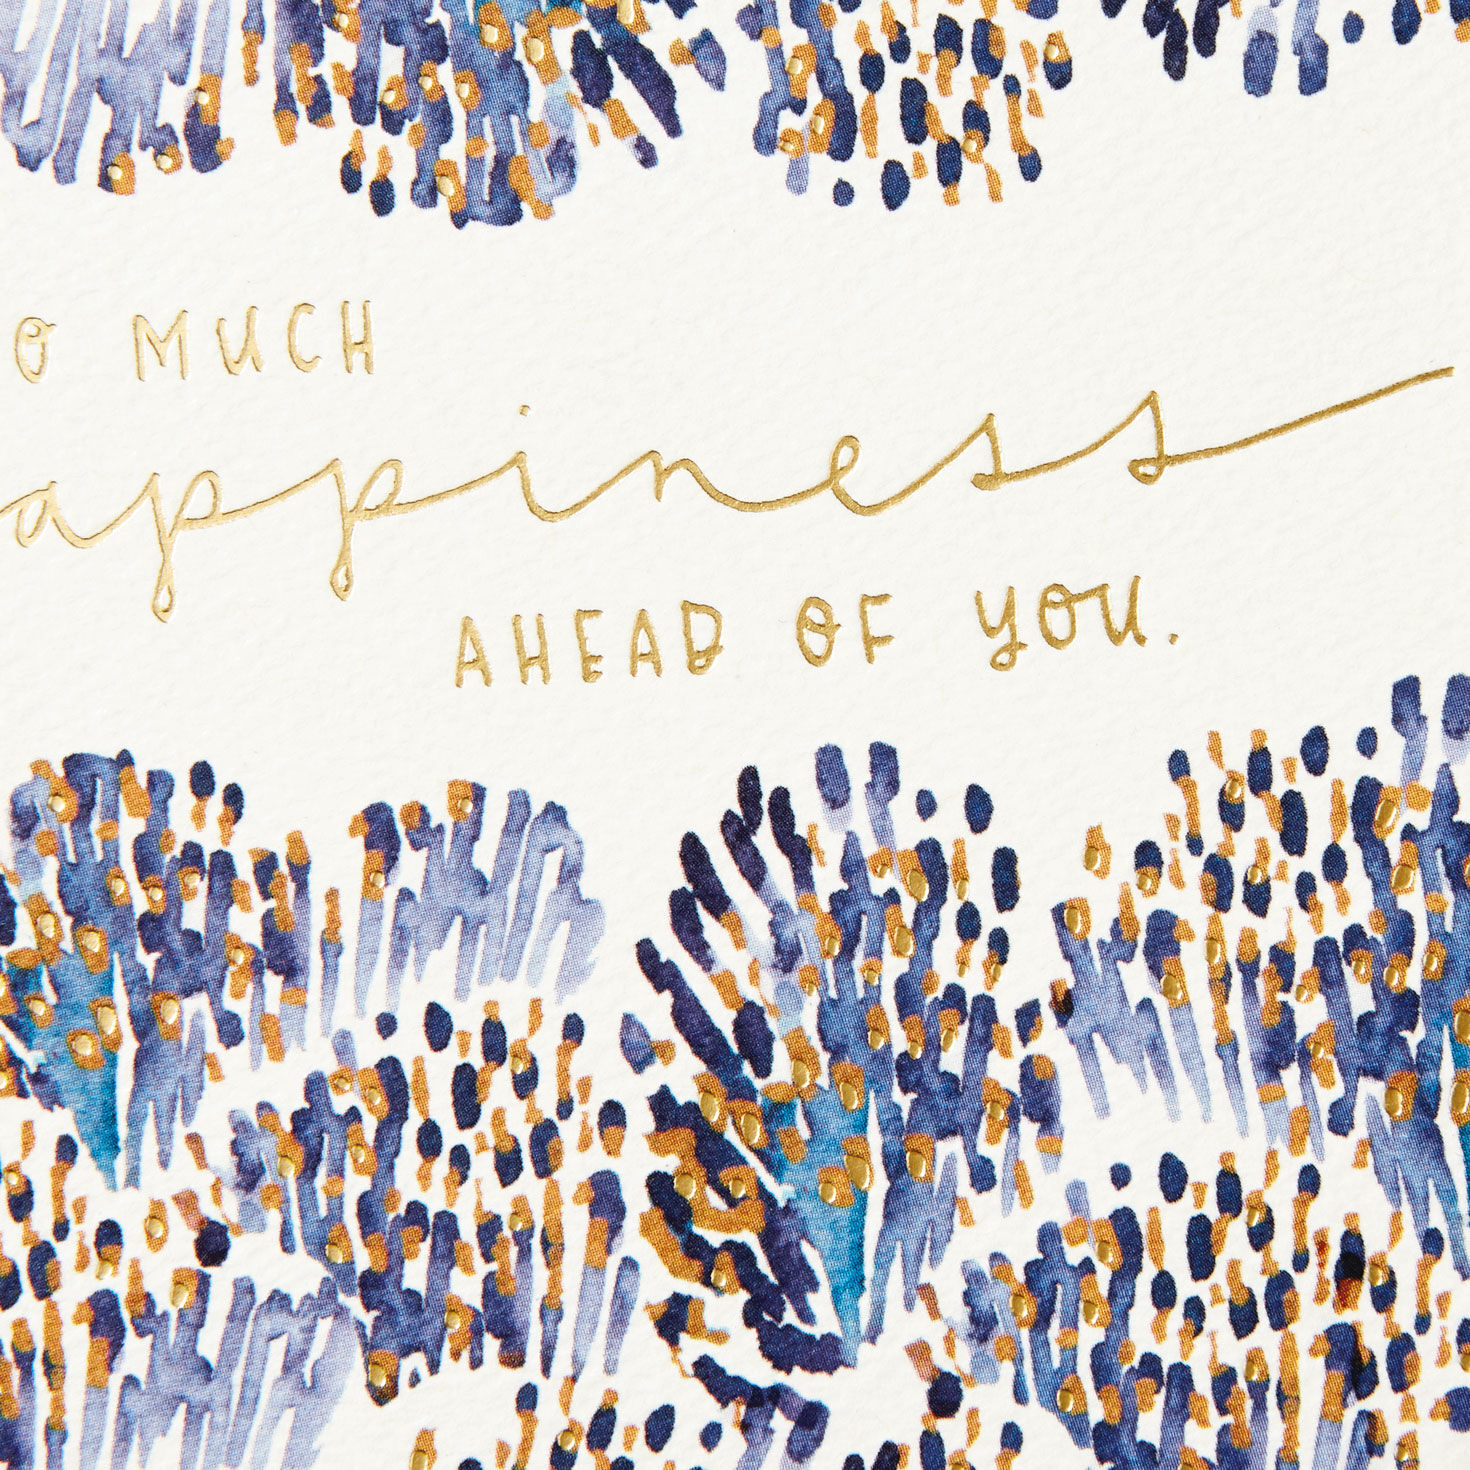 O MUCH
appiness
AHEAD OF YOU.